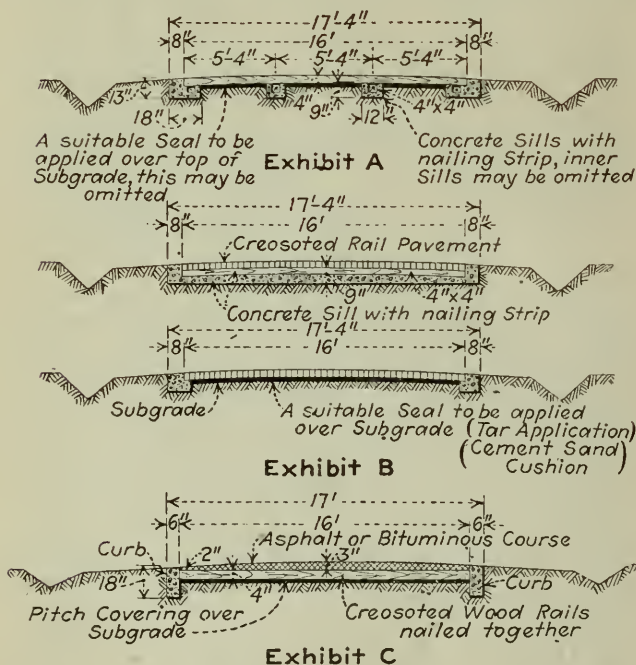 17'-4"
8" 16' 8"
5'-4" 5'-4" 5'-4"
13" 4" 4"x4"
18" 9" 12"
A suitable Seal to be
applied over top of
Subgrade, this may be
omitted
Concrete Sills with
nailing Strip, inner
Sills may be omitted
Exhibit A
17'-4"
8" 16' 8"
Creosoted Rail Pavement
9" 4"x4"
Concrete Sill with nailing Strip
17'-4"
8" 16' 8"
Subgrade
A suitable Seal to be applied
over Subgrade (Tar Application)
(Cement Sand)
Cushion
Exhibit B
17'
6" 16' 6"
Asphalt or Bituminous Course
Curb 2" 3"
18" 4" Curb
Pitch Covering over
Subgrade
Creosoted Wood Rails
nailed together
Exhibit C